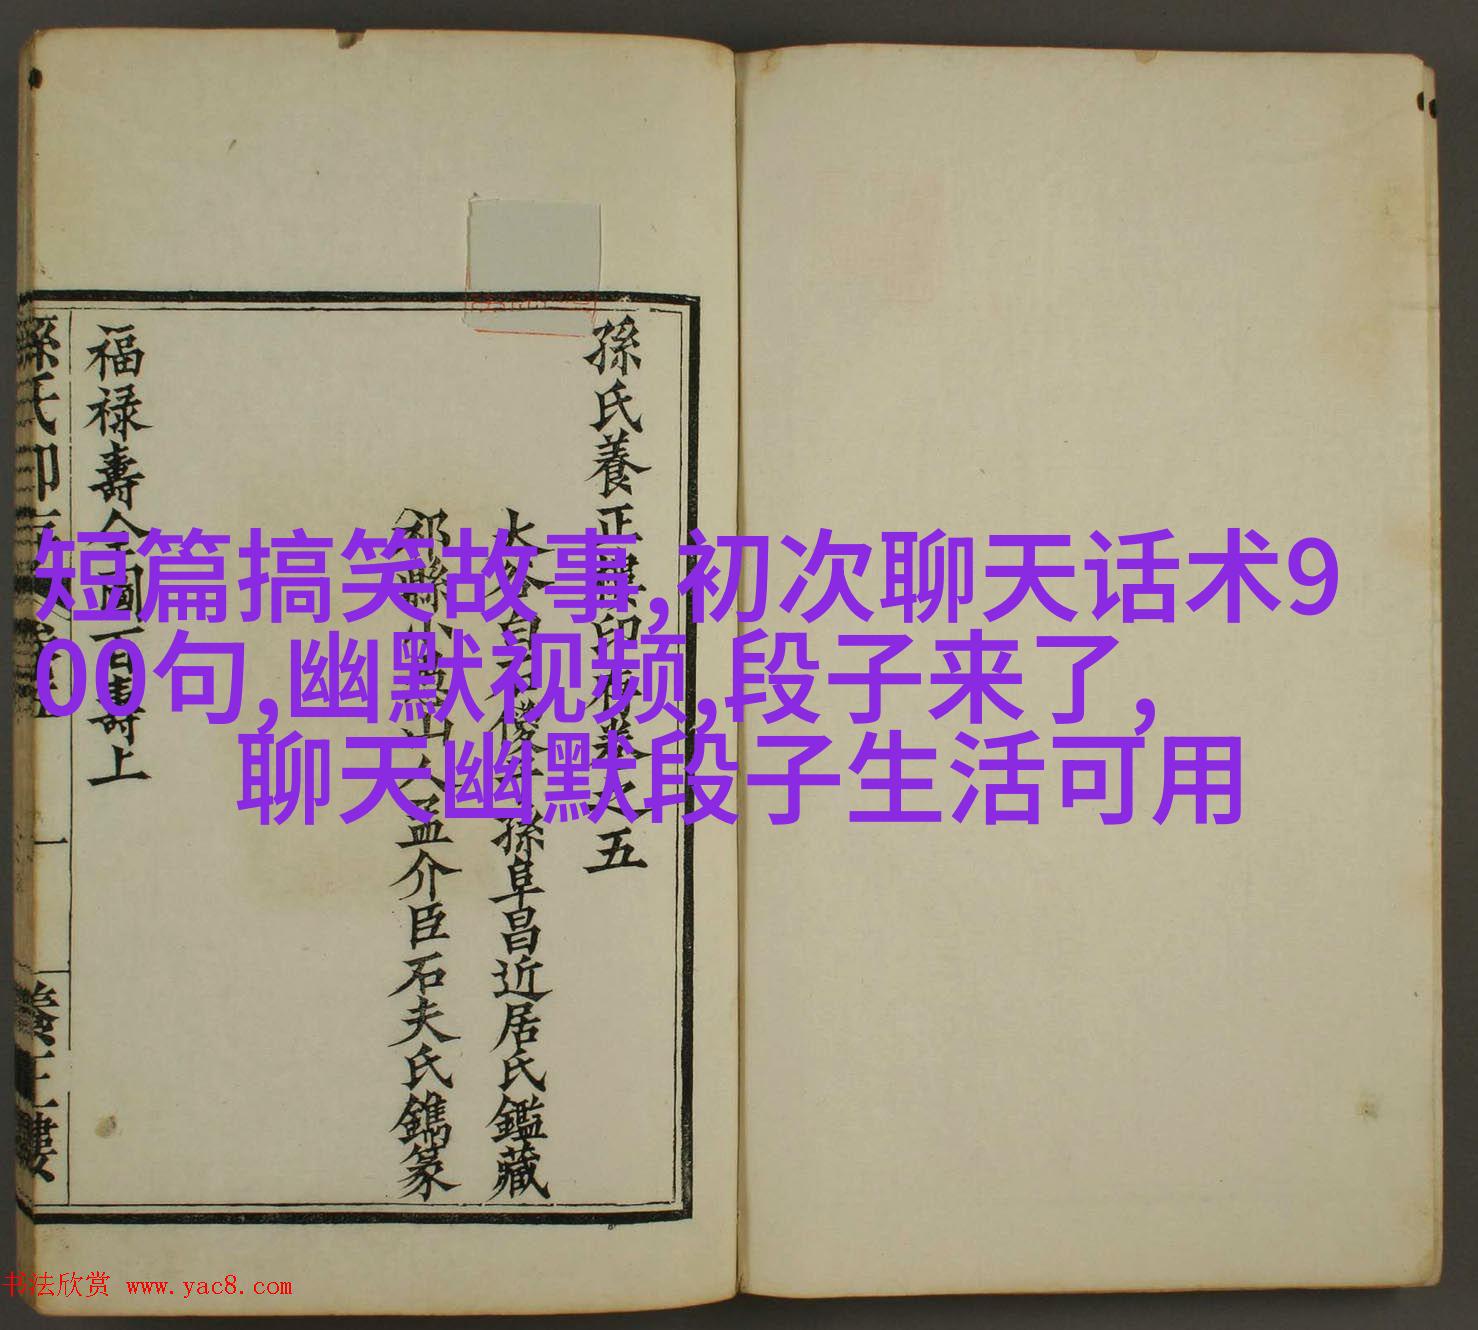 短篇搞笑故事,初次聊天话术9
00句,幽默视频,段子来了,
聊天幽默段子生活可用
孫氏養正樓印存卷之五
孫阜昌近居氏鑑藏
孟介臣石夫氏鐫篆
福禄壽全圖百壽上
书法欣赏 www.yac8.com